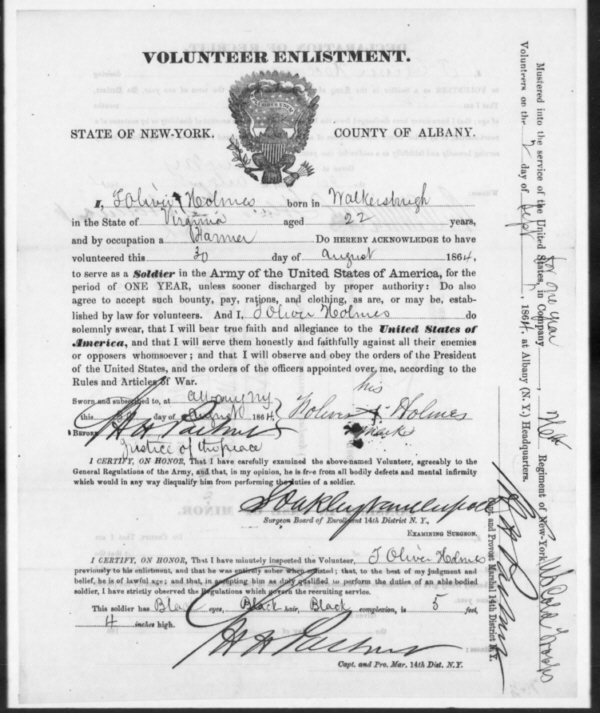 VOLUNTEER ENLISTMENT.
STATE OF NEW-YORK. COUNTY OF ALBANY.
I, T Oliver Holmes born in Walkersburgh
in the State of Virginia aged 22 years,
and by occupation a Farmer Do HEREBY ACKNOWLEDGE to have
volunteered this 30 day of August 1864,
to serve as a Soldier in the Army of the United States of America, for the
period of ONE YEAR, unless sooner discharged by proper authority: Do also
agree to accept such bounty, pay, rations, and clothing, as are, or may be, estab-
lished by law for volunteers. And I, T Oliver Holmes do
solemnly swear, that I will bear true faith and allegiance to the United States of
America, and that I will serve them honestly and faithfully against all their enemies
or opposers whomsoever; and that I will observe and obey the orders of the President
of the United States, and the orders of the officers appointed over me, according to the
Rules and Articles of War.
Sworn and subscribed to, at Albany NY his
this 30 day of August 1864 T Oliver Holmes
BEFORE mark
Justice of the peace
I CERTIFY, ON HONOR, That I have carefully examined the above-named Volunteer, agreeably to the
General Regulations of the Army, and that, in my opinion, he is free from all bodily defects and mental infirmity
which would in any way disqualify him from performing the duties of a soldier.
Surgeon Board of Enrollment 14th District N. Y.,
EXAMINING SURGEON.
I CERTIFY, ON HONOR, That I have minutely inspected the Volunteer, T Oliver Holmes
previously to his enlistment, and that he was entirely sober when enlisted; that, to the best of my judgment and
belief, he is of lawful age; and that, in accepting him as duly qualified to perform the duties of an able bodied
soldier, I have strictly observed the Regulations which govern the recruiting service.
This soldier has Black eyes, Black hair, Black complexion, is 5 feet,
4 inches high.
Capt. and Pro. Mar. 14th Dist. N. Y.
Mustered into the service of the United States, in Company , Regiment of New-York
for one year
Volunteers on the 2 day of Sept , 1864, at Albany (N. Y.) Headquarters.
and Provost Marshal 14th District N.Y.